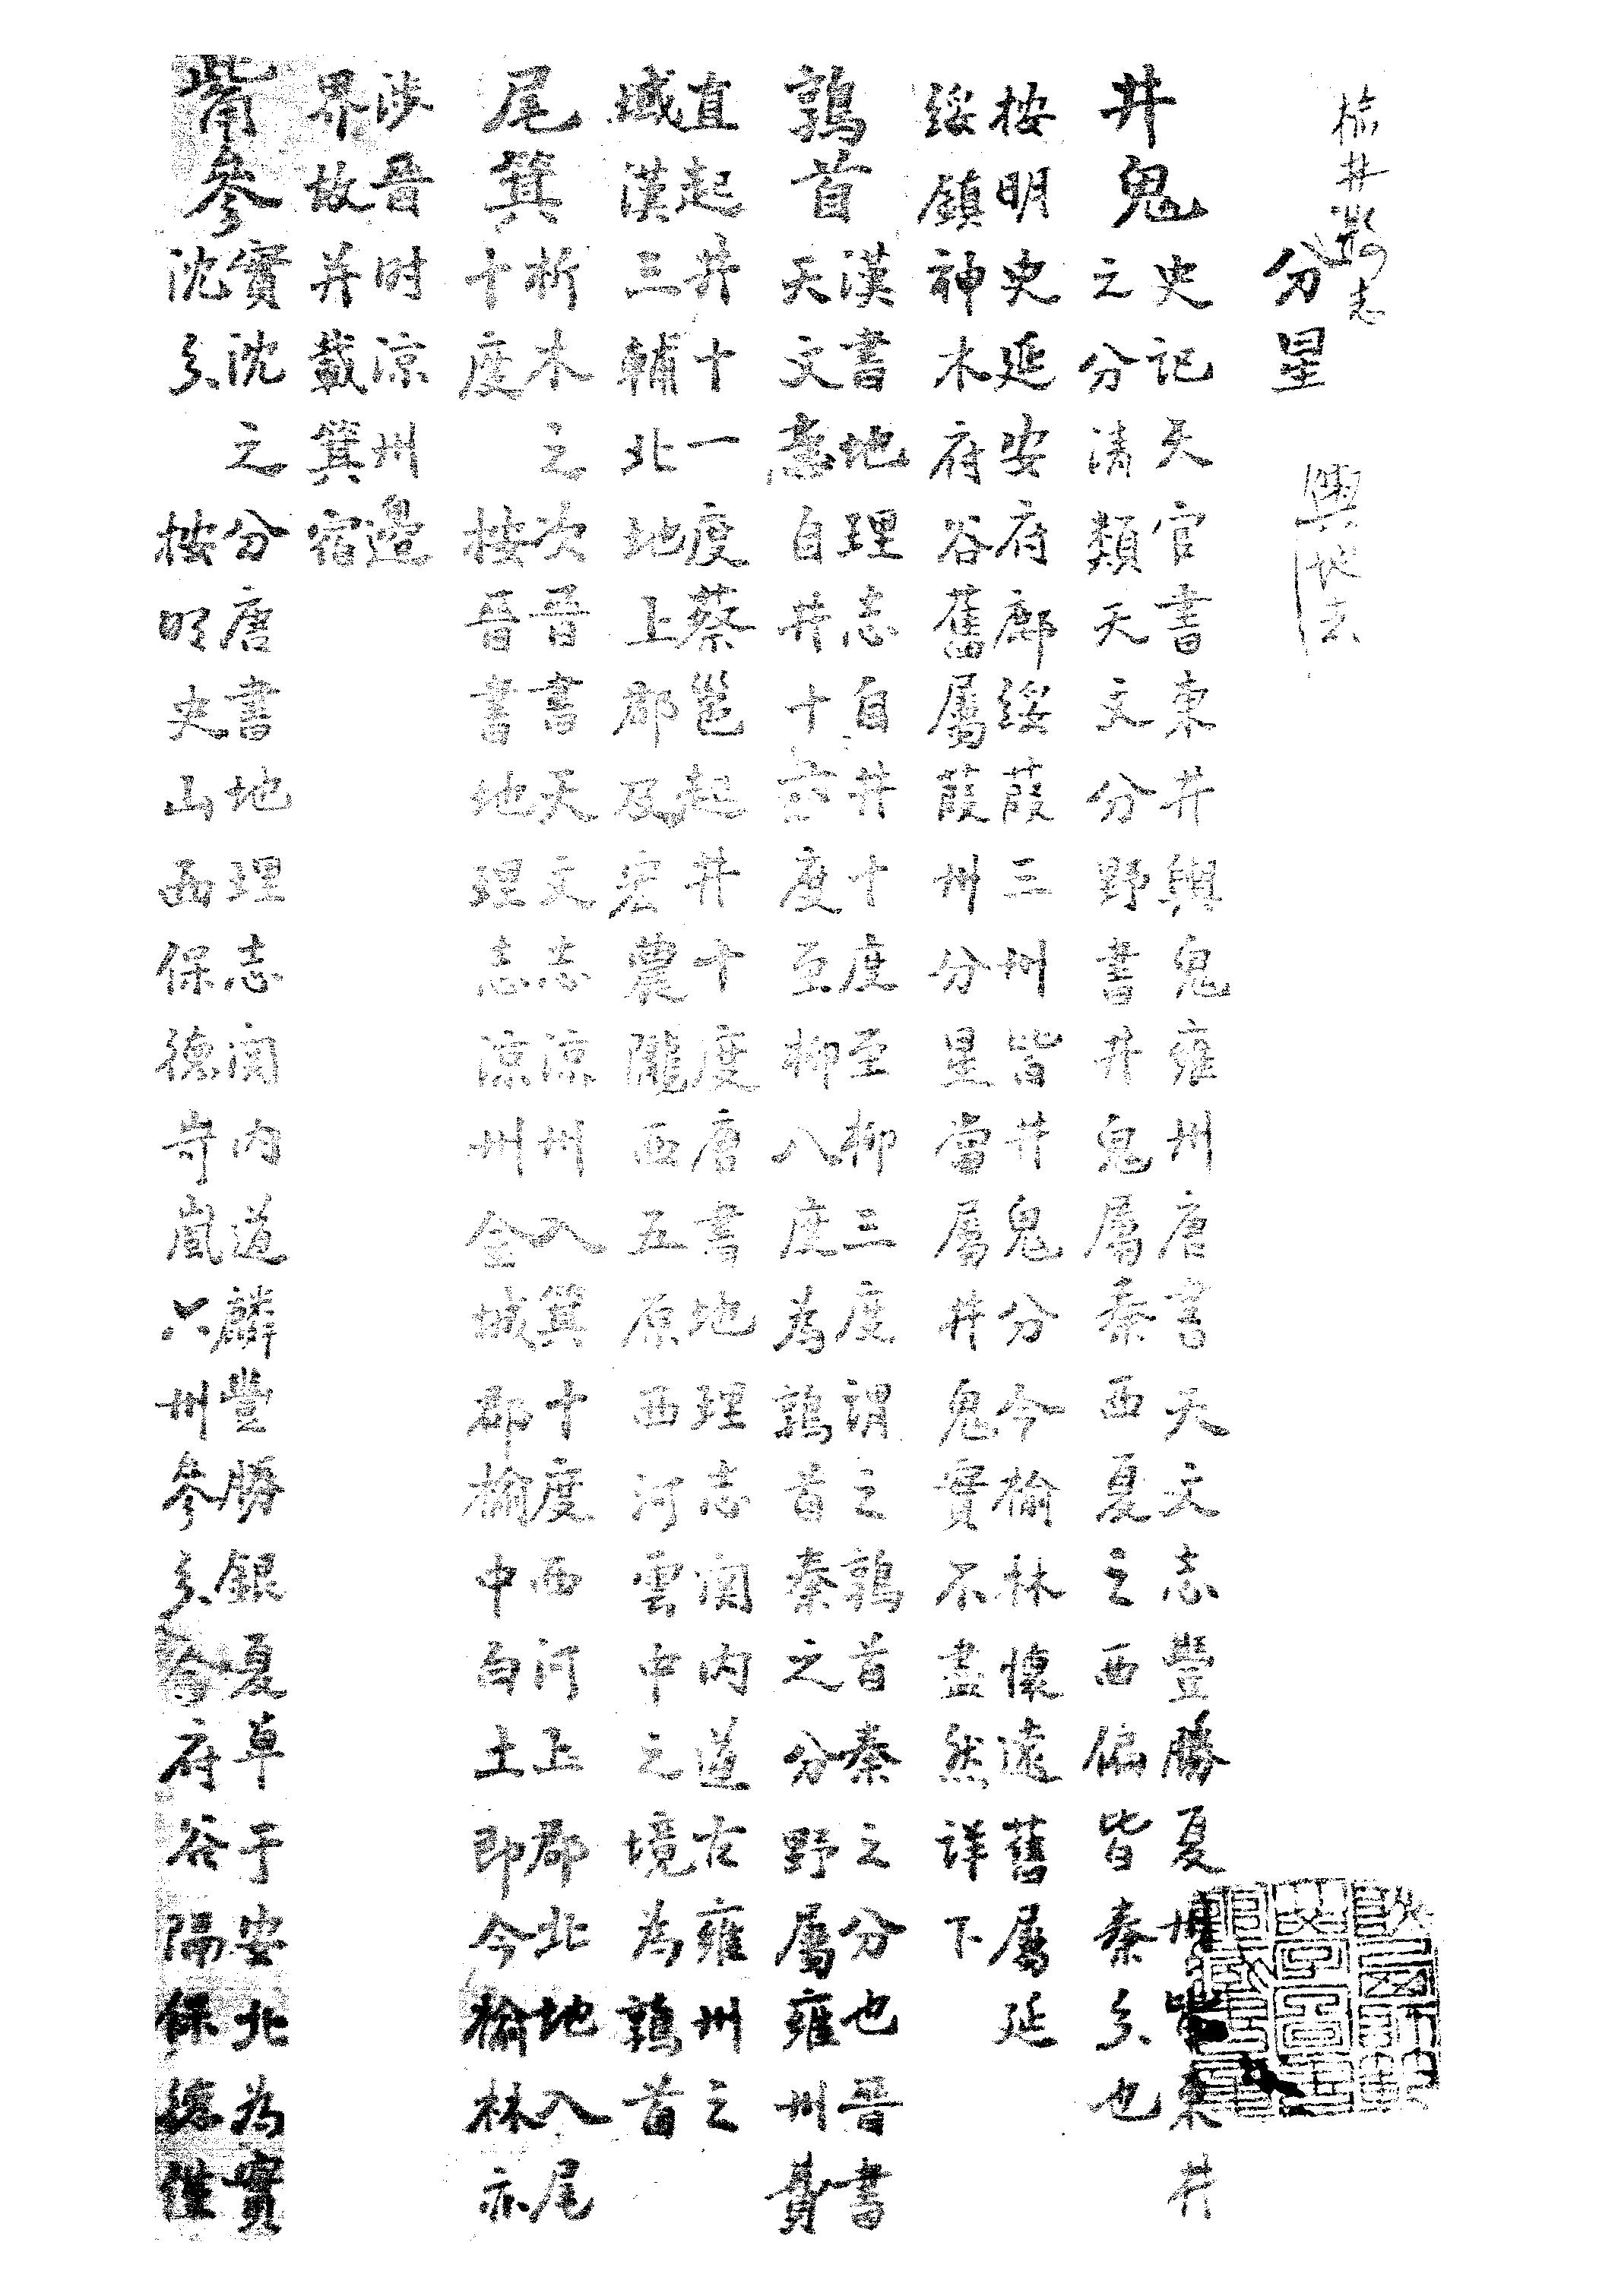 輿地志
分星
井鬼
史記天官書東井輿鬼雍州唐書天文志豐勝夏州皆東井
之分清類天文分野書井鬼屬秦西夏之西偏皆秦也
按明史延安府鄜綏葭三州皆井鬼分今榆林懷遠舊屬延
綏鎮神木府谷舊屬葭州分星當屬井鬼實不盡然詳下
鶉首
漢書地理志自井十度至柳三度謂之鶉首秦之分也晉書
天文志自井十六度至柳八度為鶉首秦之分野屬雍州費
直起井十一度蔡邕起井十度唐書地理志関內道古雍州之
域漢三輔北地上郡及宏農隴西五原西河雲中之境為鶉首
尾箕
析木之次晉書天文志涼州入箕十度西河上郡北地入尾
十度 按晉書地理志涼州金城郡榆中白土即今榆林亦
涉晉时涼州邊
界故并載箕宿
觜參
實沈之分唐書地理志関內道麟豐勝銀夏草于安北為實
沈 按明史山西保德岢嵐州參今府谷隔保德僅